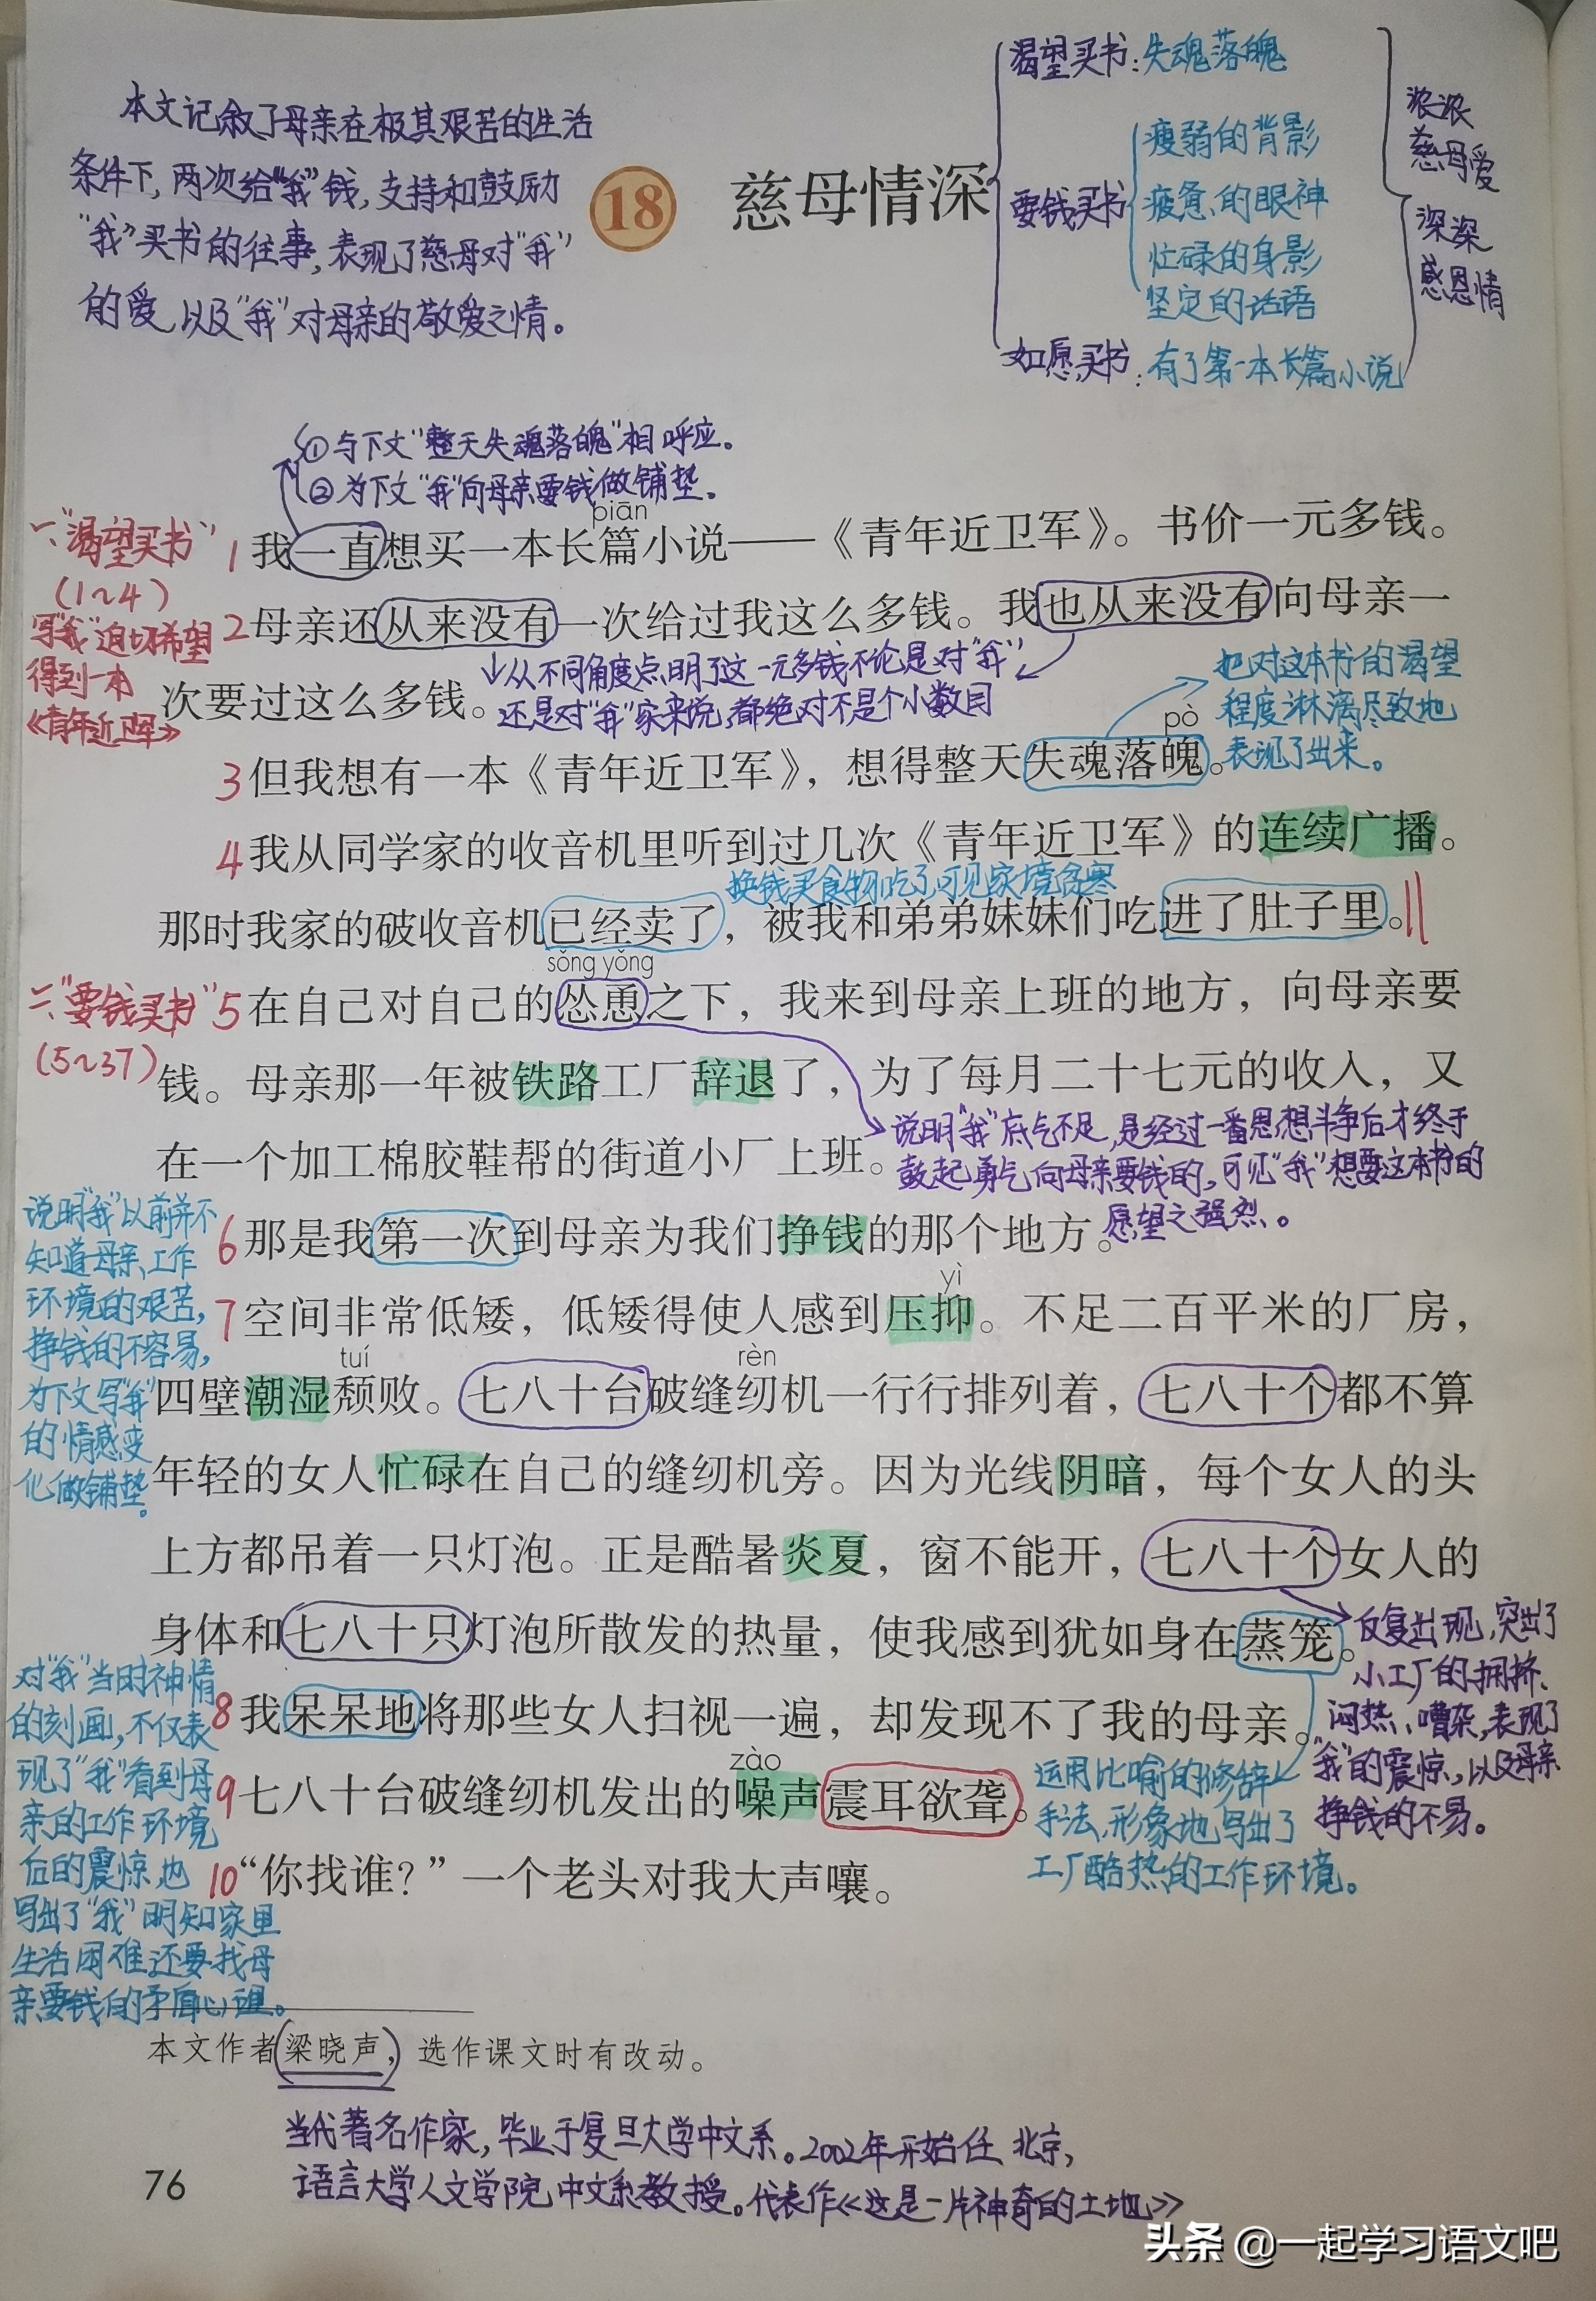 本文记叙了母亲在极其艰苦的生活
条件下,两次给“我”钱,支持和鼓励
“我”买书的往事,表现了慈母对“我”
的爱,以及“我”对母亲的敬爱之情。
18 慈母情深
渴望买书:失魂落魄
要钱买书
瘦弱的背影
疲惫的眼神
忙碌的身影
坚定的话语
如愿买书:有了第一本长篇小说
浓浓
慈母爱
深深
感恩情
①与下文“整天失魂落魄”相呼应。
②为下文“我”向母亲要钱做铺垫。
一、“渴望买书”
(1~4)
写“我”迫切希望
得到一本
《青年近卫军》
piān
1我一直想买一本长篇小说——《青年近卫军》。书价一元多钱。
2母亲还从来没有一次给过我这么多钱。我也从来没有向母亲一
次要过这么多钱。
从不同角度点明了这一元多钱不论是对“我”
还是对“我”家来说,都绝对不是个小数目
把对这本书的渴望
程度淋漓尽致地
表现了出来。
pò
3但我想有一本《青年近卫军》,想得整天失魂落魄。
4我从同学家的收音机里听到过几次《青年近卫军》的连续广播。
换钱买食物吃了,可见家境贫寒
那时我家的破收音机已经卖了,被我和弟弟妹妹们吃进了肚子里。
二、“要钱买书”
(5~37)
sǒng yǒng
5在自己对自己的怂恿之下,我来到母亲上班的地方,向母亲要
钱。母亲那一年被铁路工厂辞退了,为了每月二十七元的收入,又
在一个加工棉胶鞋帮的街道小厂上班。
说明“我”底气不足,是经过一番思想斗争后才终于
鼓起勇气向母亲要钱的,可见“我”想要这本书的
愿望之强烈。
说明“我”以前并不
知道母亲工作
环境的艰苦,
挣钱的不容易,
为下文写“我”
的情感变
化做铺垫。
6那是我第一次到母亲为我们挣钱的那个地方。
yì
7空间非常低矮,低矮得使人感到压抑。不足二百平米的厂房,
tuí rèn
四壁潮湿颓败。七八十台破缝纫机一行行排列着,七八十个都不算
年轻的女人忙碌在自己的缝纫机旁。因为光线阴暗,每个女人的头
上方都吊着一只灯泡。正是酷暑炎夏,窗不能开,七八十个女人的
身体和七八十只灯泡所散发的热量,使我感到犹如身在蒸笼。
反复出现,突出了
小工厂的拥挤、
闷热、嘈杂,表现了
“我”的震惊,以及母亲
挣钱的不易。
对“我”当时神情
的刻画,不仅表
现了“我”看到母
亲的工作环境
后的震惊,也
写出了“我”明知家里
生活困难还要找母
亲要钱的矛盾心理。
8我呆呆地将那些女人扫视一遍,却发现不了我的母亲。
zào
9七八十台破缝纫机发出的噪声震耳欲聋。
运用比喻的修辞
手法,形象地写出了
工厂酷热的工作环境。
10“你找谁?”一个老头对我大声嚷。
本文作者梁晓声,选作课文时有改动。
当代著名作家,毕业于复旦大学中文系。2002年开始任北京
语言大学人文学院中文系教授。代表作《这是一片神奇的土地》
76
头条 @一起学习语文吧